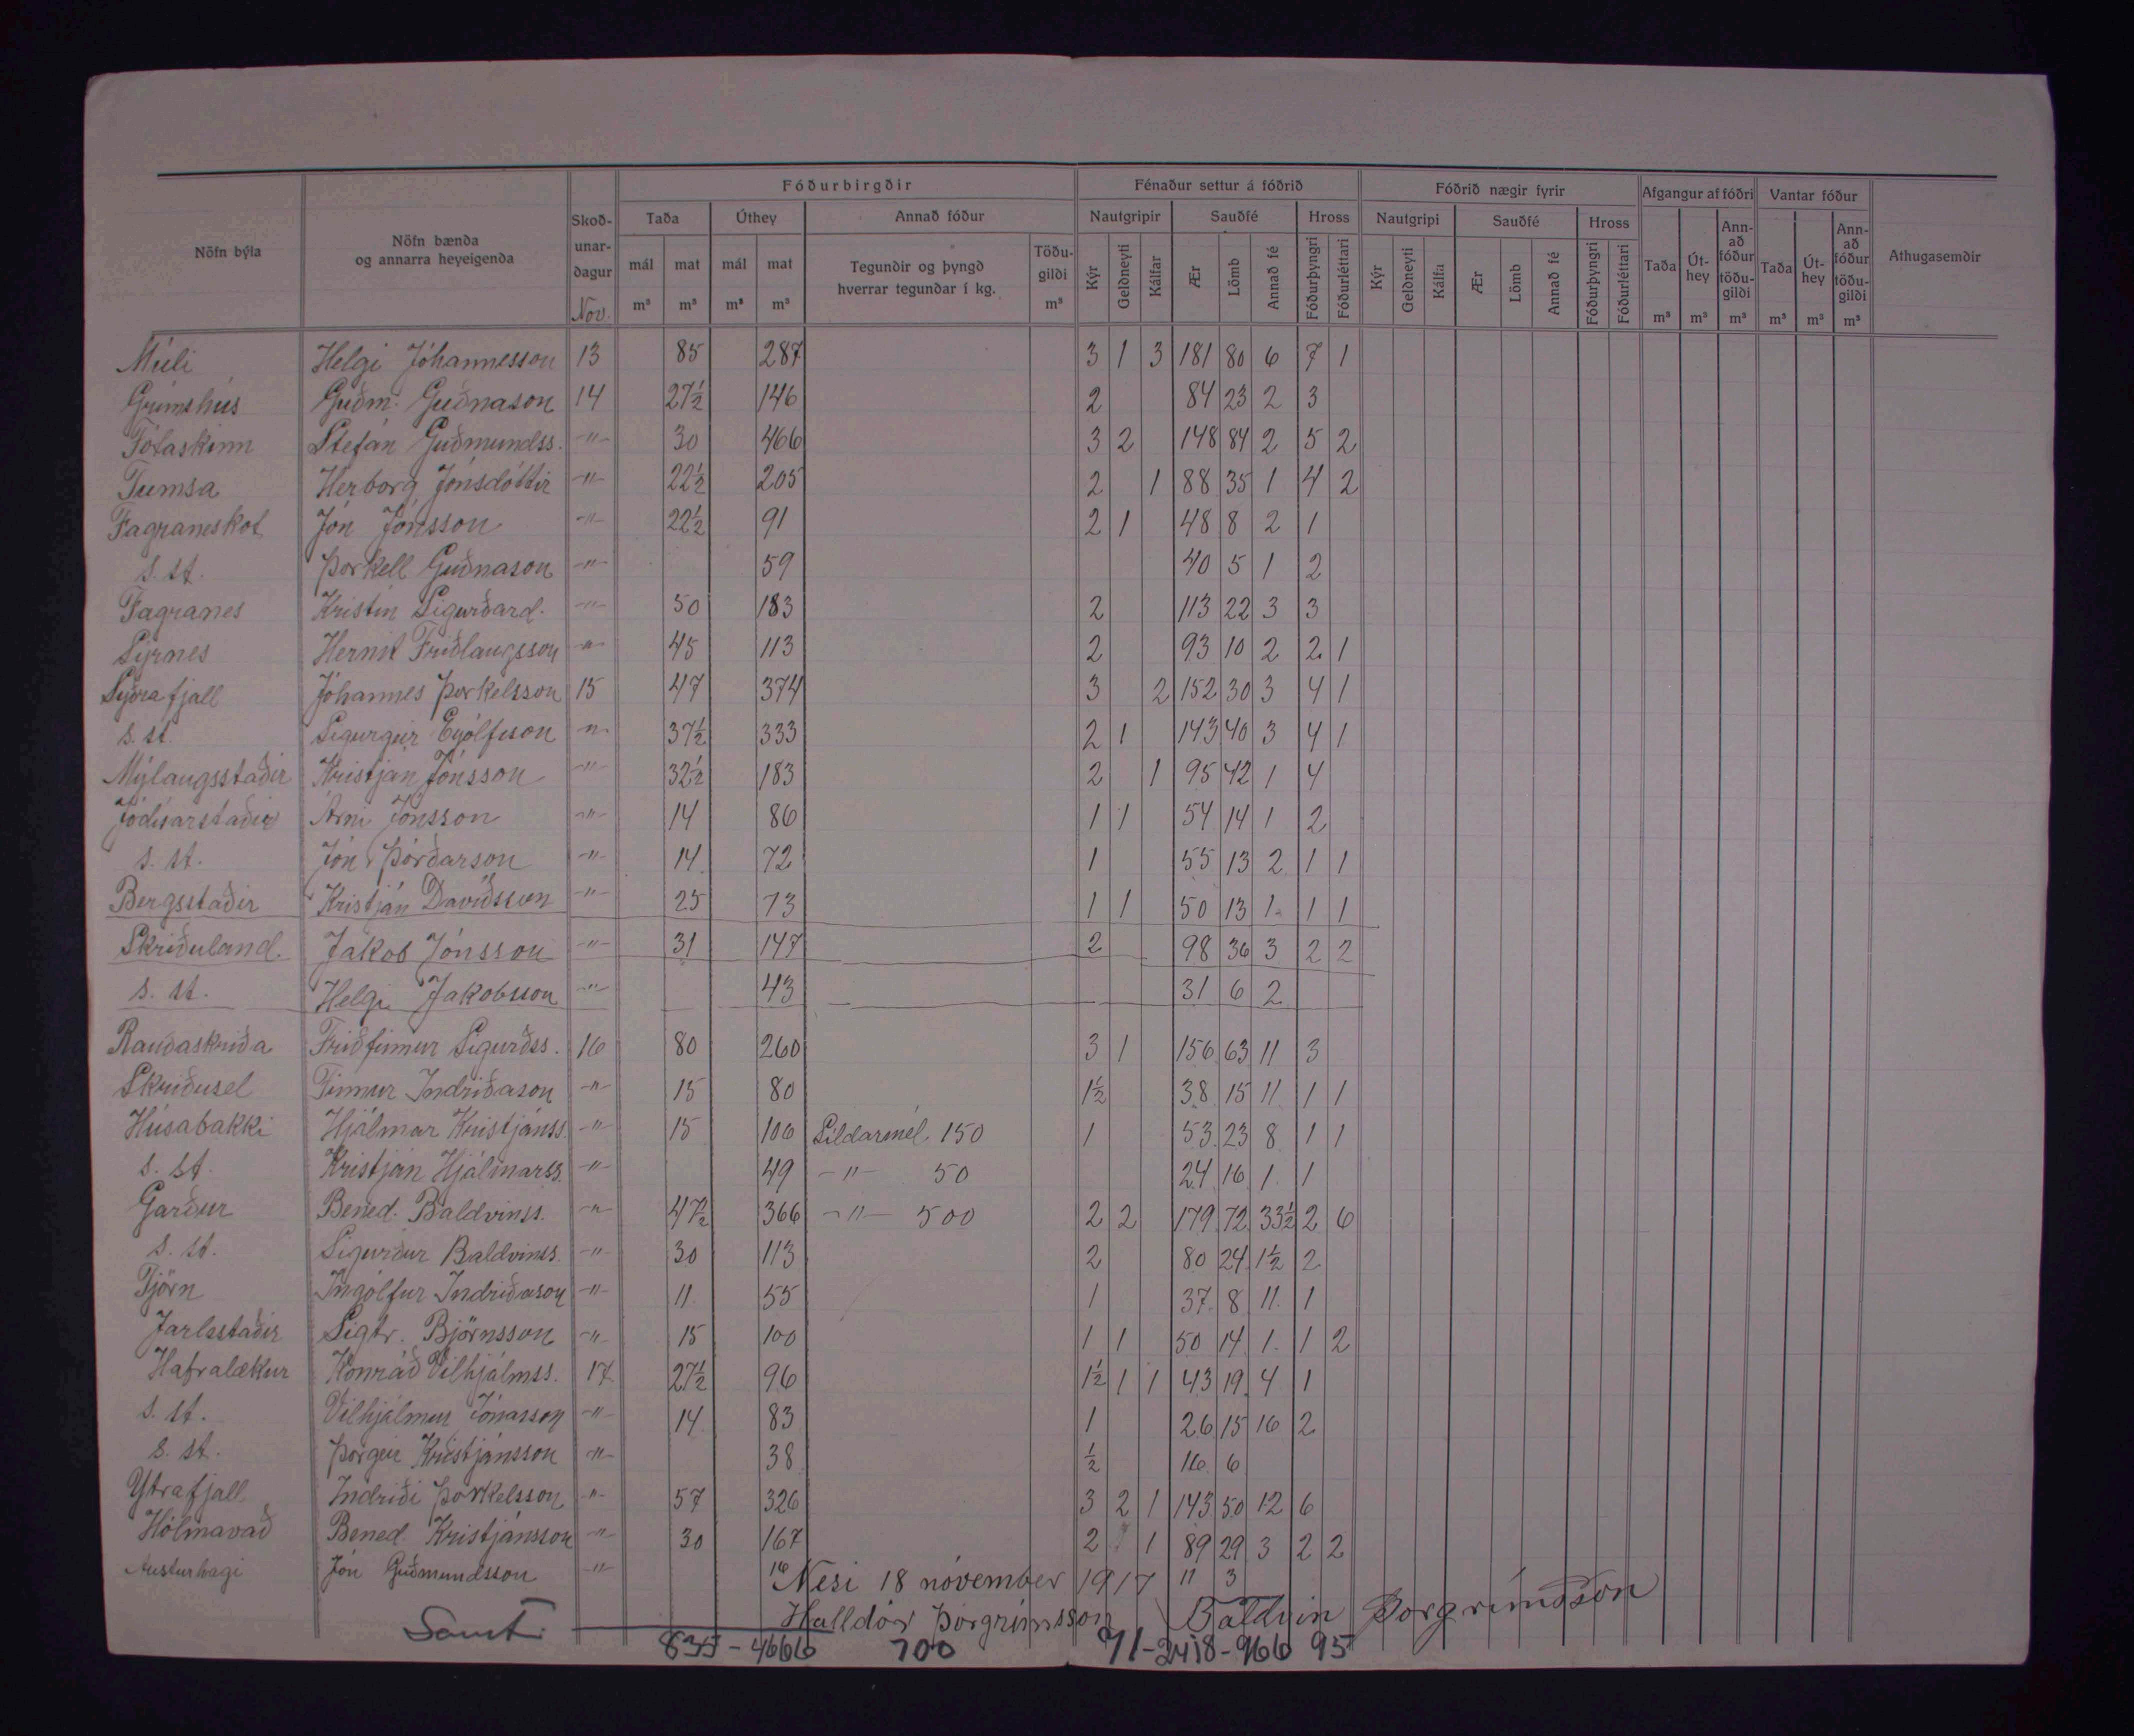 Fóðurbirgðir Fénaður settur á fóðrið Fóðrið nægir fyrir Afgangur af fóðri Vantar fóður
Nöfn býla Nöfn bænda og annarra heyeigenda Skoð-unar-dagur Taða Úthey Annað fóður Nautgripir Sauðfé Hross Nautgripi Sauðfé Hross Taða Út-hey Ann-að fóður töðu-gildi Taða Út-hey Ann-að fóður töðu-gildi Athugasemdir
mál mat mál mat Tegundir og þyngd hverrar tegundar í kg. Töðu-gildi Kýr Geldneyti Kálfar Ær Lömb Annað fé Fóðurþyngri Fóðurléttari Kýr Geldneyti Kálfa Ær Lömb Annað fé Fóðurþyngri Fóðurléttari
Nov. m³ m³ m³ m³ m³ m³ m³ m³ m³ m³ m³
Múli Helgi Jóhannesson 13 85 287 3 1 3 181 80 6 7 1
Grímshús Guðm. Guðnason 14 27½ 146 2 84 23 2 3
Fótaskinn Stefán Guðmundss. -"- 30 466 3 2 148 84 2 5 2
Tumsa Herborg Jónsdóttir -"- 22½ 205 2 1 88 35 1 4 2
Fagraneskot Jón Jónsson -"- 22½ 91 2 1 48 8 2 1
s. st. Þorkell Guðnason -"- 59 40 5 1 2
Fagranes Kristín Sigurðard. -"- 50 183 2 113 22 3 3
Syrnes Hernit Friðlaugsson -"- 45 113 2 93 10 2 2 1
Syðrafjall Jóhannes Þorkelsson 15 47 374 3 2 152 30 3 4 1
s. st. Sigurgeir Eyólfsson -"- 37½ 333 2 1 143 40 3 4 1
Mýlaugsstaðir Kristján Jónsson -"- 32½ 183 2 1 95 42 1 4
Jódísarstaðir Árni Jónsson -"- 14 86 1 1 54 14 1 2
s. st. Jón Þórðarson -"- 14 72 1 55 13 2 1 1
Bergsstaðir Kristján Davíðsson -"- 25 73 1 1 50 13 1 1 1
Skriðuland. Jakob Jónsson -"- 31 147 2 98 36 3 2 2
s. st. Helgi Jakobsson -"- 43 31 6 2
Rauðaskriða Friðfinnur Sigurðss. 16 80 260 3 1 156 63 11 3
Skriðusel Finnur Indriðason -"- 15 80 1½ 38 15 11 1 1
Húsabakki Hjálmar Kristjánss. -"- 15 106 Síldarmél 150 1 53 23 8 1 1
s. st. Kristján Hjálmarss. -"- 49 -"- 50 24 16 1 1
Garður Bened. Baldvinss. -"- 47½ 366 -"- 500 2 2 179 72 33½ 2 6
s. st. Sigurður Baldvinss. -"- 30 113 2 80 24 1½ 2
Tjörn Ingólfur Indriðason -"- 11 55 1 37 8 11 1
Jarlsstaðir Sigtr. Björnsson -"- 15 100 1 1 50 14 1 1 2
Hafralækur Konráð Vilhjálmss. 17 27½ 96 1½ 1 1 43 19 4 1
s. st. Vilhjálmur Jónasson -"- 14 83 1 26 15 16 2
s. st. Þorgeir Kristjánsson -"- 38 ½ 16 6
Ytrafjall Indriði Þorkelsson -"- 57 326 3 2 1 143 50 12 6
Hólmavað Bened Kristjánsson -"- 30 167 2 1 89 29 3 2 2
Austurhagi Jón Guðmundsson -"- 16 11 3
Nesi 18 nóvember 1917
Halldór Þorgrímsson Baldvin Þorgrímsson
Samt. 835 - 4666 700 71 - 2418 - 966 95